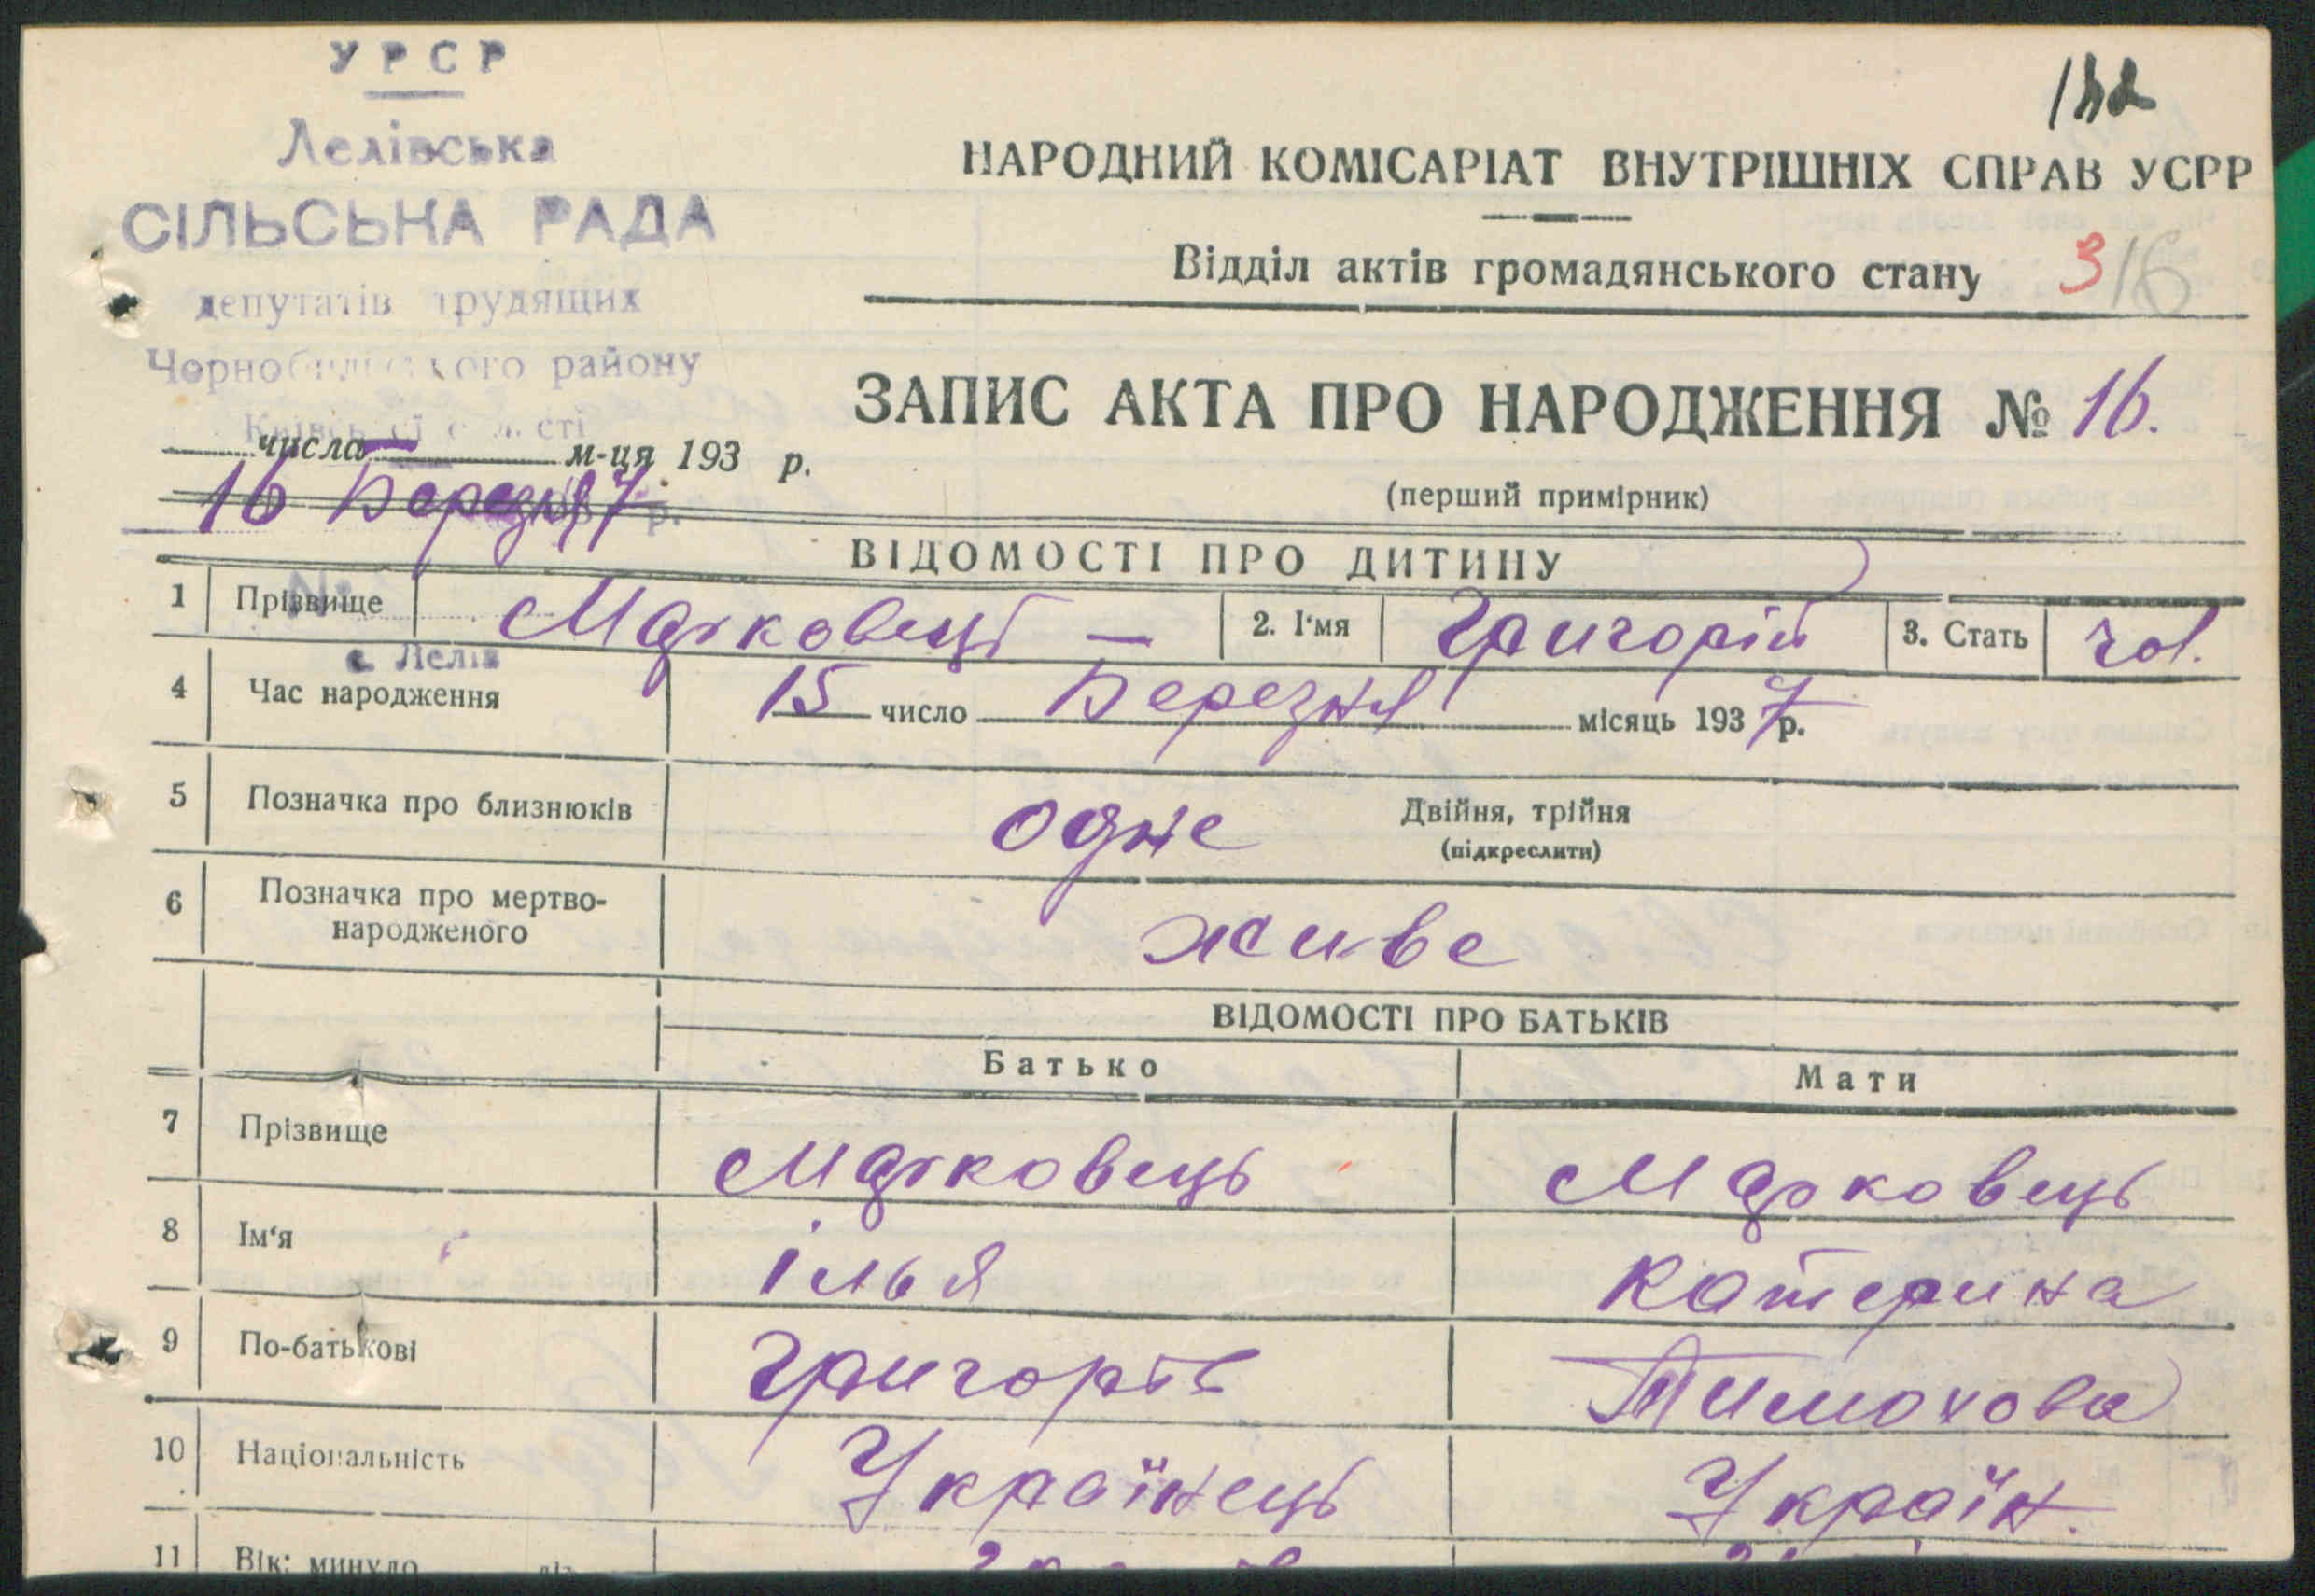 УРСР
Лелівська
СІЛЬСЬКА РАДА
депутатів трудящих
Чорнобильського району
Київської області
числа м-ця 193 р.
16 Березня 7 р.
с. Лелів
НАРОДНИЙ КОМІСАРІАТ ВНУТРІШНІХ СПРАВ УСРР
Відділ актів громадянського стану 316
ЗАПИС АКТА ПРО НАРОДЖЕННЯ № 16.
(перший примірник)
ВІДОМОСТІ ПРО ДИТИНУ
1 Прізвище Марковець — 2. І'мя Григорій 3. Стать чол.
4 Час народження 15 число Березня місяць 1937 р.
5 Позначка про близнюків одне Двійня, трійня
(підкреслити)
6 Позначка про мертво-
народженого живе
ВІДОМОСТІ ПРО БАТЬКІВ
Батько Мати
7 Прізвище Марковець Марковець
8 Ім'я Ілья Катерина
9 По-батькові Григорів Тимохова
10 Національність Українець Україн.
11 Вік: минуло літ